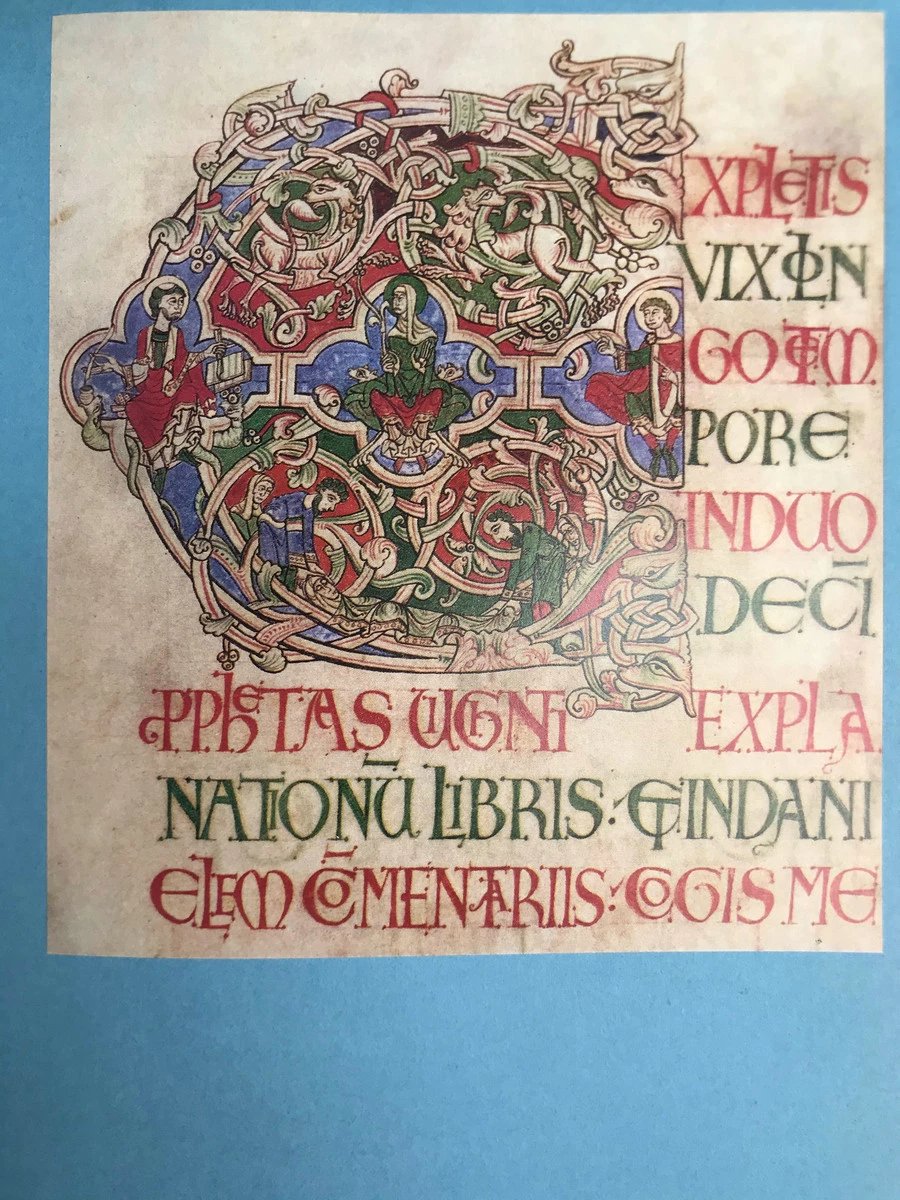 EXPLETIS
VIX LON
GO TEM
PORE
IN DUO
DECĪ
PPHETAS UIGINTI EXPLA
NATIONŪ LIBRIS: ET IN DANI
ELEM CŌMENTARIIS: COGIS ME